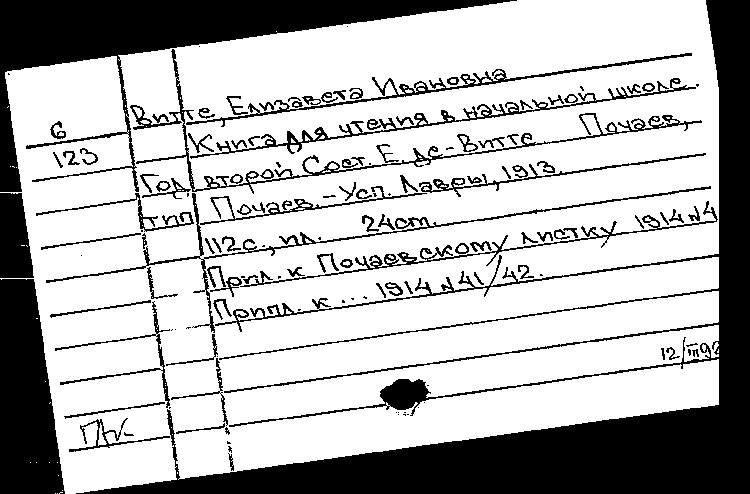 Витте, Елизавета Ивановна
6
123
Книга для чтения в начальной школе.
Год второй Сост. Е. де-Витте Почаев,
тип Почаев.-Усп. Лавры, 1913.
112 с., ил. 24 см.
Прил. к Почаевскому листку 1914 №4
Припл. к ... 1914 №41/42.
12/III 92